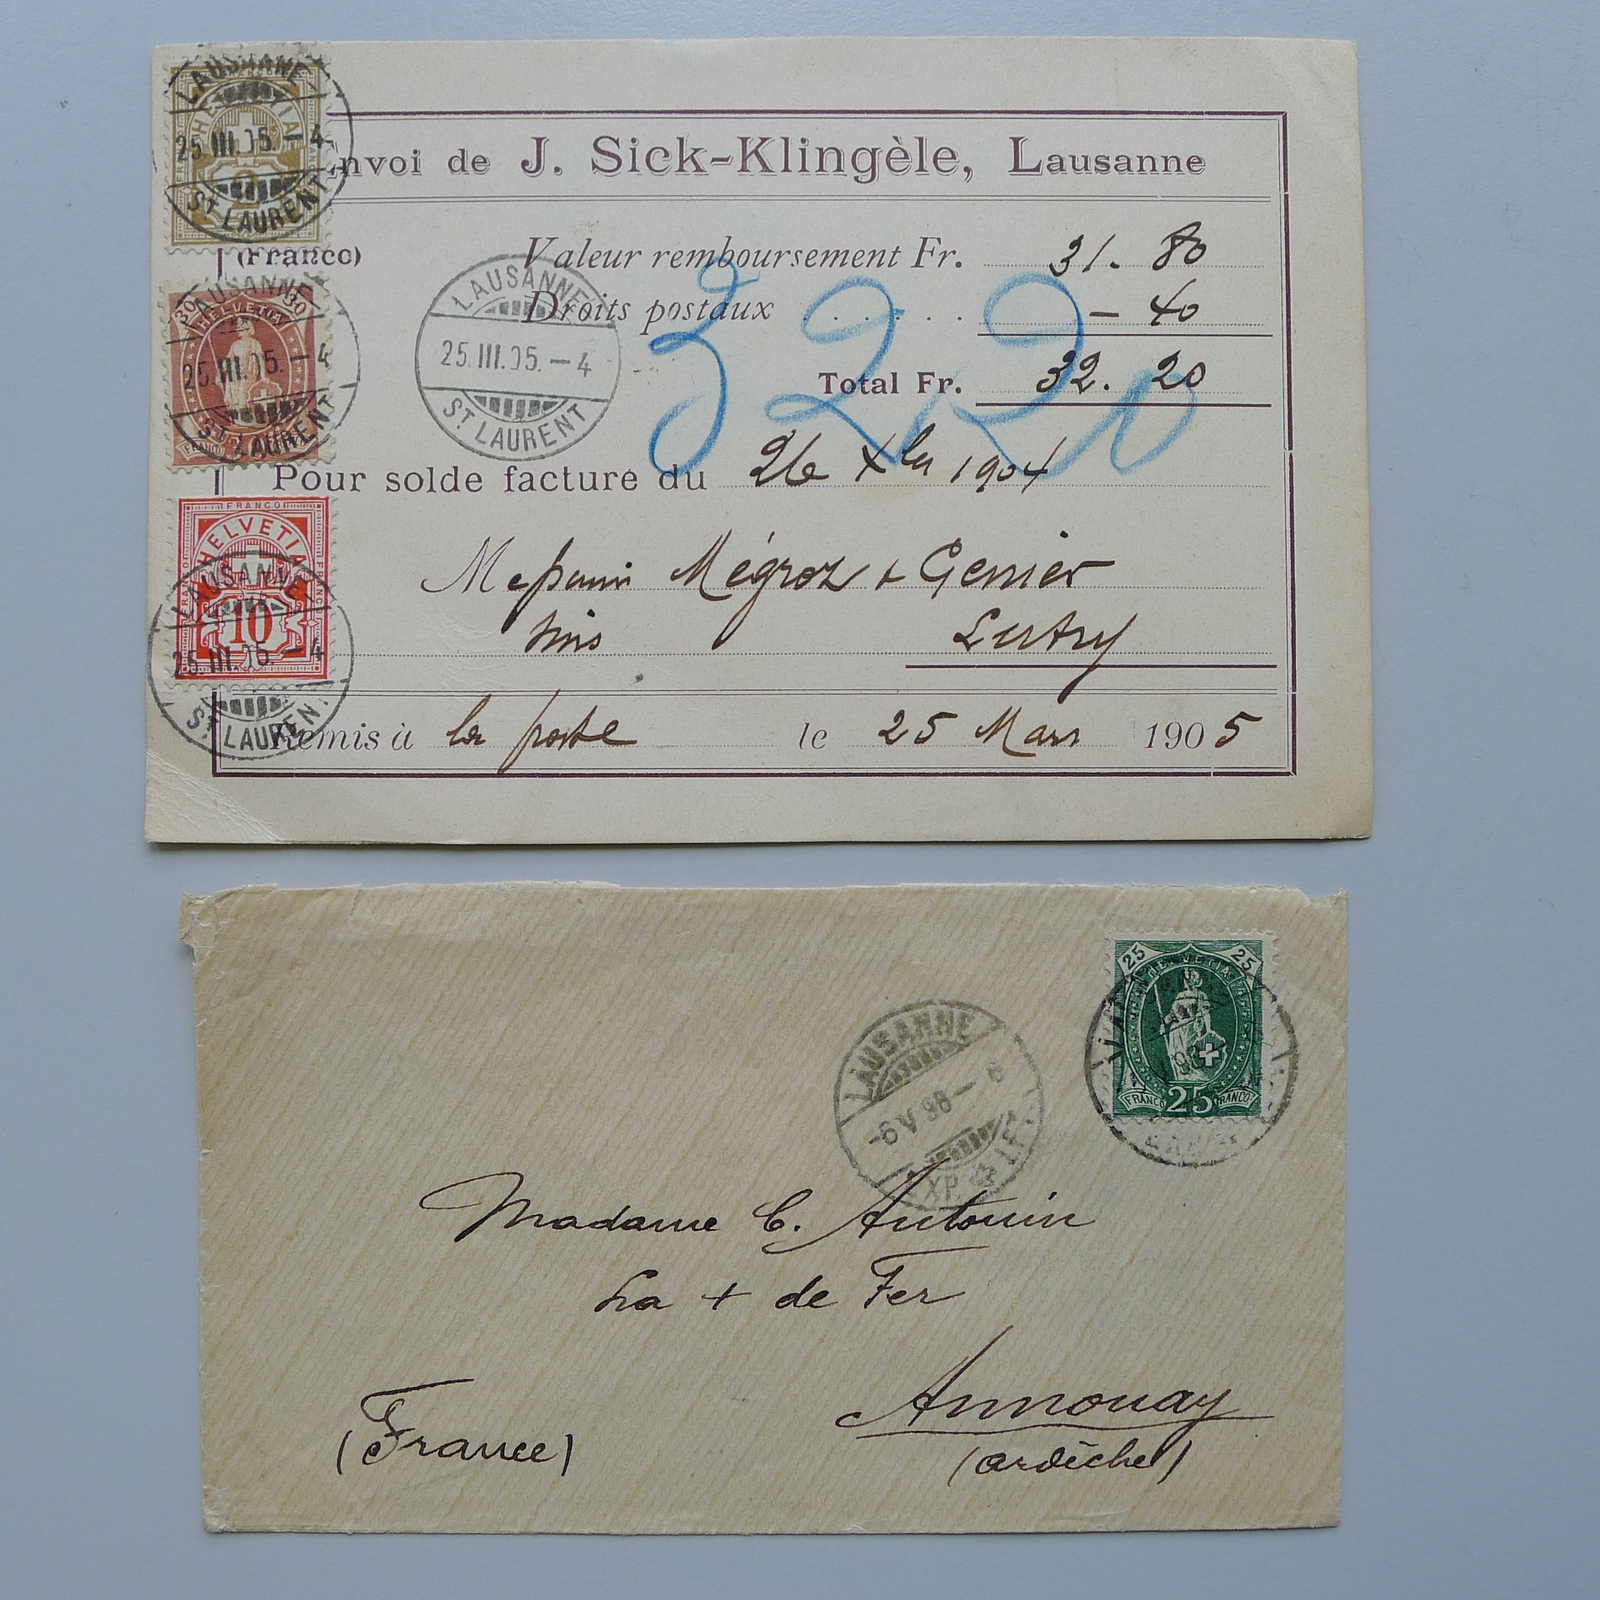 LAUSANNE
25.III.05.–4
ST LAURENT
HELVETIA
2
nvoi de J. Sick-Klingèle, Lausanne
(Franco)
Valeur remboursement Fr. 31. 80
Droits postaux ...... – 40
Total Fr. 32. 20
3220
30 30
HELVETIA
FRANCO
LAUSANNE
25.III.05.–4
ST LAURENT
LAUSANNE
25.III.05.–4
ST LAURENT
Pour solde facture du 26 Xbr 1904
FRANCO
HELVETIA
10
LAUSANNE
25.III.05.–4
ST LAURENT
Mégroz & Genier
vins Lutry
Remis à la poste le 25 Mars 1905
25 HELVETIA 25
FRANCO 25 FRANCO
LAUSANNE
-6.V.98-
EXP. LET.
Madame C. Antonin
La + de Fer
Annonay
(France) (Ardèche)